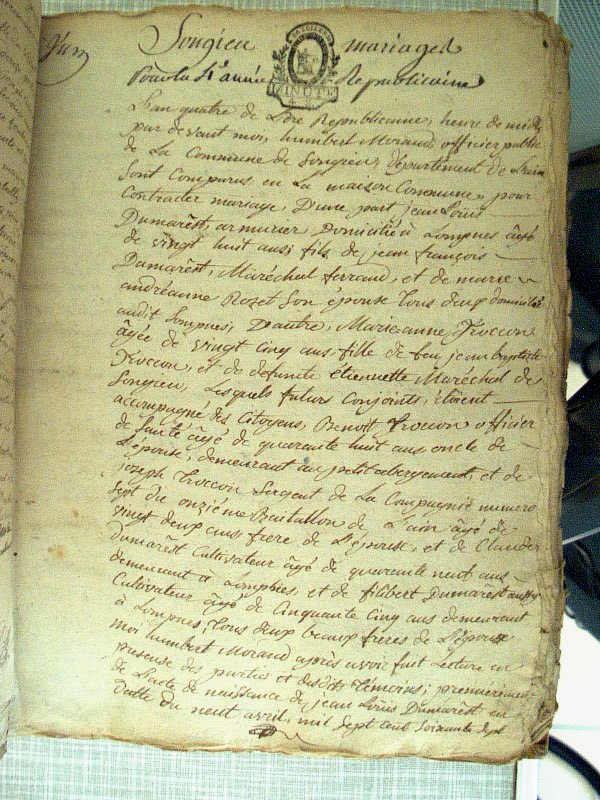 Songieu mariages
Pour la 4e année Republicaine
MINUTE
L'an quatre de l'ère Republicaine, heure de midy
par devant moi, humbert Morand, officier public
de La Commune de Songieu, département de L'ain
Sont Comparus en La maison Commune, pour
Contracter mariage, D'une part jean Louis
Dumarest, armurier, Domicilié à Lompnes âgé
de vingt huit ans fils de jean françois
Dumarest, Maréchal ferrand, et de marie
andréanne Rozet Son épouse tous deux domiciliés
audit Lompnes, D'autre, Marie-anne Troccon
âgée de vingt Cinq ans, fille de feu jean baptiste
Troccon, et de defunte étiennette Maréchal de
Songieu, Lesquels futurs Conjoints, étoient
acompagné des Citoyens, Benoit Troccon officier
de Santé âgé de quarente huit ans oncle de
L'épouse, demeurant au petit abergement, et de
joseph Troccon Sergent de La Compagnie numero
Sept du onzième Bataillon de L'ain âgé de
vingt deux ans frere de L'épouse, et de Claude
Dumarest Cultivateur âgé de quarente neuf ans
demeurant à Lompnes, et de filibert Dumarest aussy
Cultivateur âgé de Cinquante Cinq ans demeurant
à Lompnes, tous deux beaux freres de L'épouse
moi humbert Morand après avoir fait Lecture en
presense des parties et desdits témoins; premièrement
de L'acte de naissance de jean Louis Dumarest en
datte du neuf avril, mil Sept Cent Soixante Sept